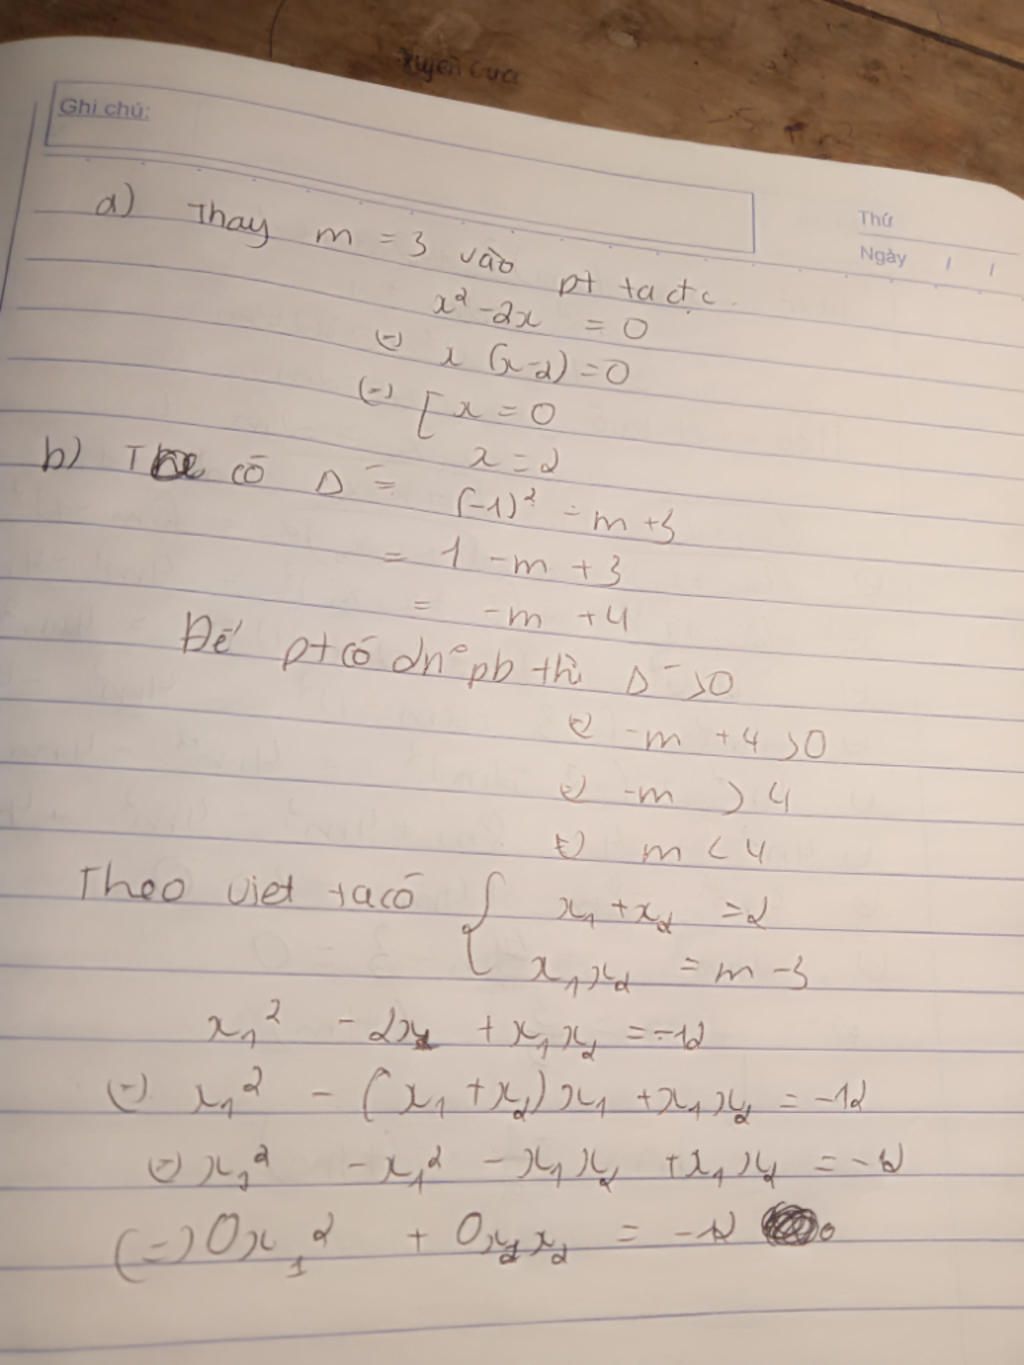 Ghi chú:
Thứ
Ngày / /
a) Thay m = 3 vào pt ta đc
x² - 2x = 0
(=) x (x-2) = 0
(=) [ x = 0
x = 2
b) Ta có Δ' = (-1)² - m + 3
= 1 - m + 3
= -m + 4
Để pt có 2n° pb thì Δ' > 0
(=) -m + 4 > 0
(=) -m > 4
(=) m < 4
Theo viet ta có { x₁ + x₂ = 2
x₁x₂ = m - 3
x₁² - 2x₂ + x₁x₂ = -12
(=) x₁² - (x₁ + x₂)x₁ + x₁x₂ = -12
(=) x₁² - x₁² - x₁x₂ + x₁x₂ = -12
(=) 0x₁² + 0x₁x₂ = -12